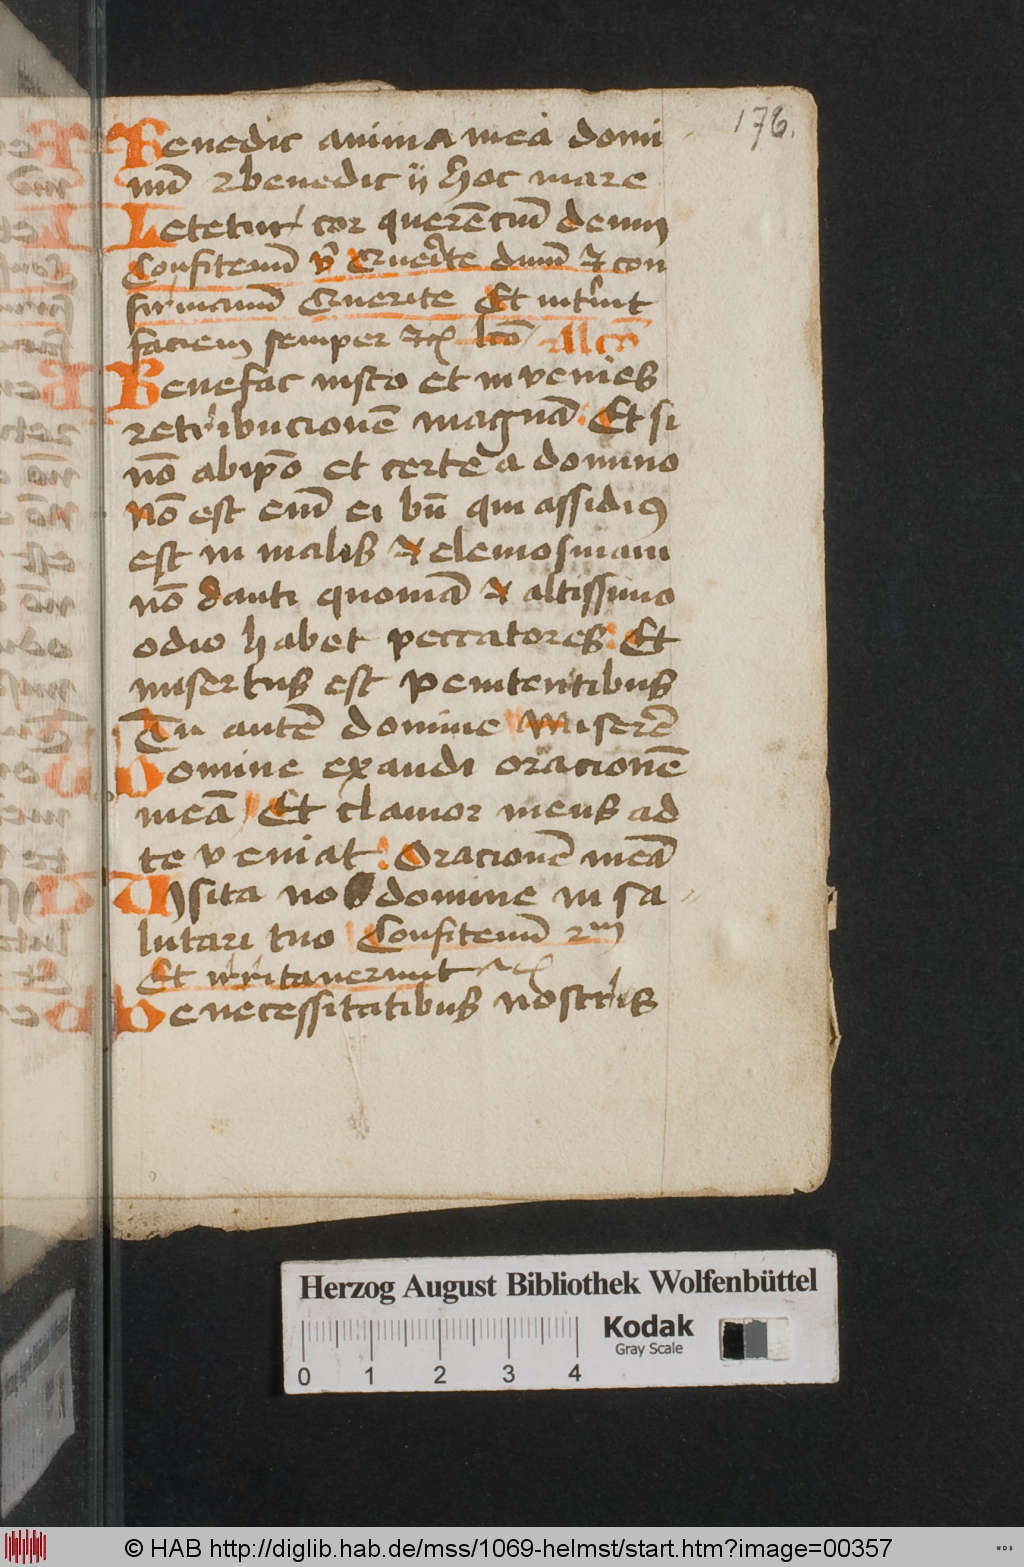 178.
Benedic anima mea domi
nū 2 benedic ij hoc mare
Letetur cor querēciū deum
Confiteanū v̄ Querite dnūm ⁊ con
firmamī Querite Et intrīut
faciem semper ⁊c̄ lcō Alcō
Benefac iusto et invenies
retribucionē magnā Et si
nō abip̄o et certe a domino
Nō est enī ei bn̄ qui assidius
est in malis ⁊ elemosinam
nō danti quoniā ⁊ altissimo
odio habet peccatores Et
misertus est penitentibus
Tu autē domine Miserē
Domine exaudi oracionē
meā Et clamor meus ad
te veniat Oracionē meā
Visita nos domine in sa
lutari tuo Confitemī
Et irritaverunt ⁊c̄
De necessitatibus nostris
Herzog August Bibliothek Wolfenbüttel
Kodak
Gray Scale
0 1 2 3 4
© HAB http://diglib.hab.de/mss/1069-helmst/start.htm?image=00357